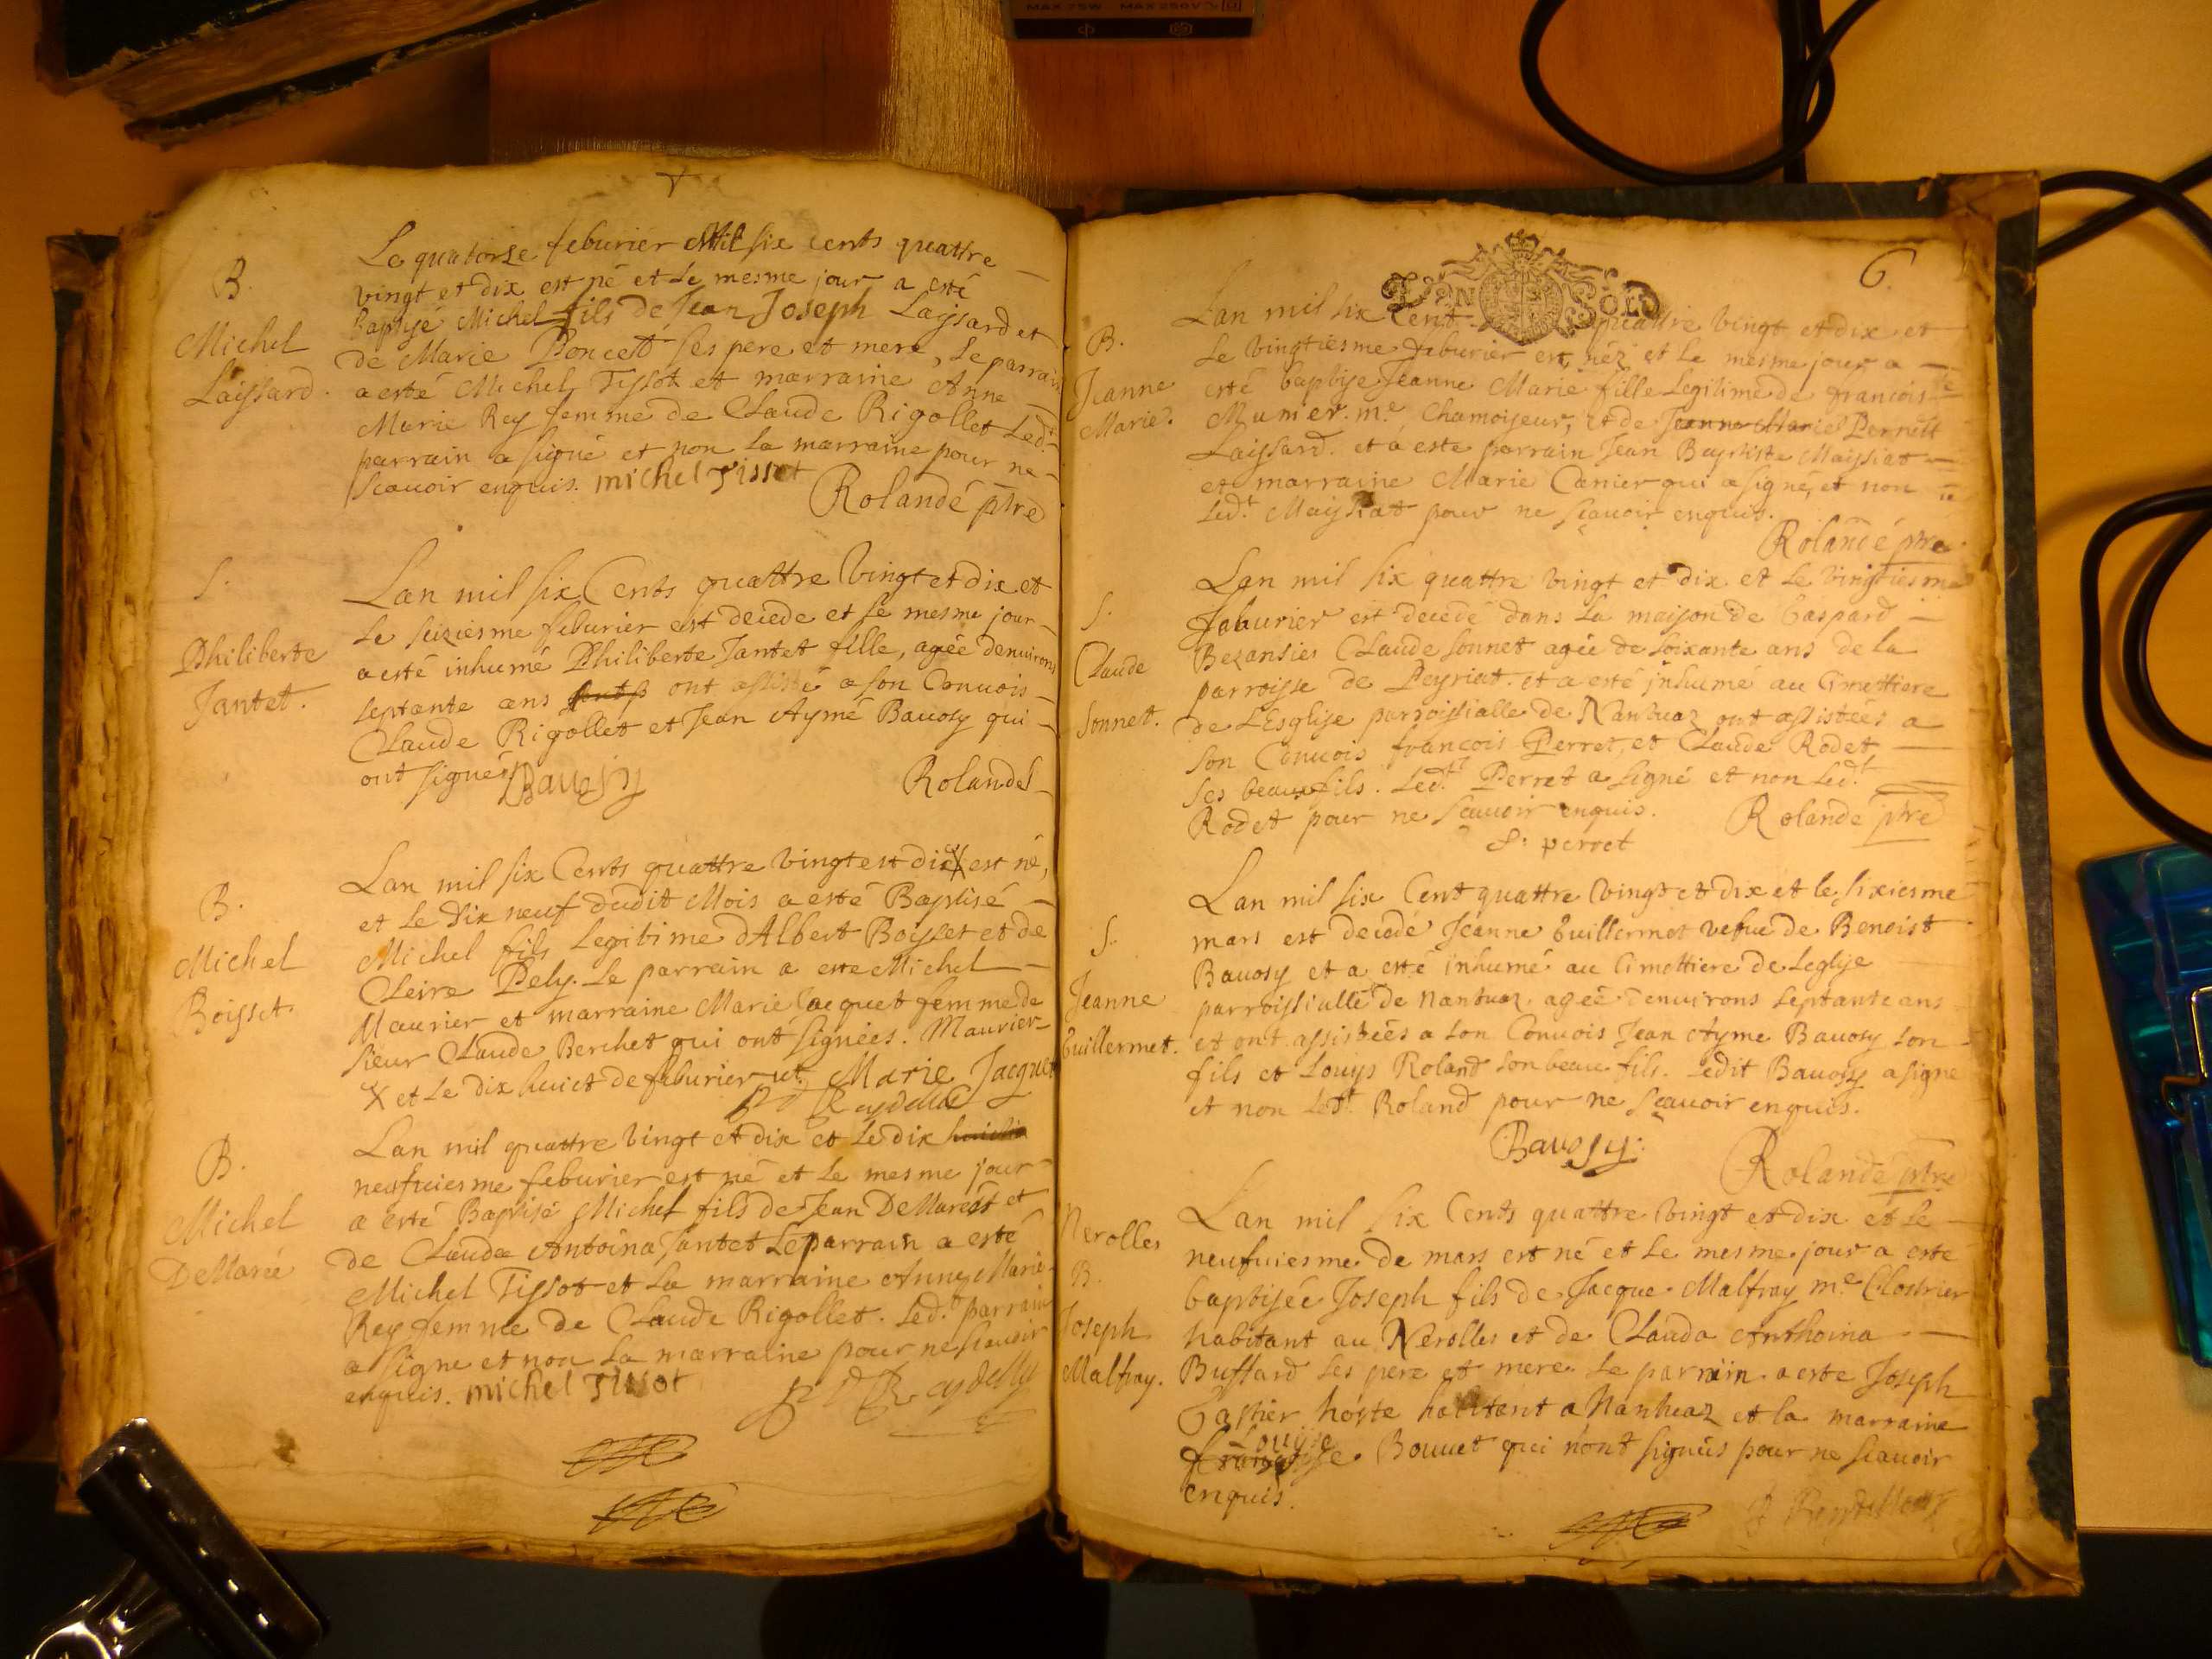 Le quatorse feburier Mil six cents quattre
B.
vingt et dix est né et le mesme jour a esté
Michel
Baptisé Michel fils de Jean Joseph Layssard et
Layssard.
de Marie Poncet ses pere et mere, Le parrain
a esté Michel Tissot et marraine Anne
Marie Rey femme de Claude Rigollet Led.t
parrain a signé et non la marraine pour ne
scauoir enquis. michel Tissot
Rolandé ptre
S.
Philiberte
Jantet.
Lan mil six Cents quattre vingt et dix et
le seiziesme feburier est decede et le mesme jour
a esté inhumé Philiberte Jantet fille, agée denuirons
septante ans ont assisté a son Conuois
Claude Rigollet et Jean Aymé Bauosy qui
ont signués
Bauosy
Rolandé
B.
Michel
Boisset
Lan mil six Cents quattre vingt est dix X est né,
et le dix neuf dudit Mois a esté Baptisé
Michel fils Legitime dAlbert Boisset et de
Cleire Pely. Le parrain a este Michel
Maurier et marraine Marie Jacquet femme de
sieur Claude Berchet qui ont signées. Maurier
X et le dix huict de feburier
Marie Jacquet
B.
Michel
DeMarée
Lan mil quattre vingt et dix et le dix
neufuiesme feburier est né et le mesme jour
a esté Baptisé Michel fils de Jean DeMarest et
de Clauda Antoina Jantet Le parrain a esté
Michel Tissot et la marraine Anne Marie
Rey femme de Claude Rigollet. Led.t parrain
a signe et non la marraine pour ne scauoir
enquis. michel Tissot
6
UN SOL
B.
Jeanne
Marie.
Lan mil six Cent quattre vingt et dix et
le vingtiesme feburier est néz et le mesme jour a
esté baptise Jeanne Marie fille Legitime de francois
Munier m.e Chamoiseur, et de Jeanne Marie Pernett
Laissard. et a este parrain Jean Baptiste Maissiat
et marraine Marie Canier qui a signé, et non
Led.t Maissiat pour ne scauoir enquis.
Rolandé ptre
S.
Claude
Sonnet.
Lan mil six quattre vingt et dix et le vingtiesme
feburier est decedé dans la maison de Gaspard
Bezansies Claude Sonnet agée de soixante ans de la
parroisse de Peyriat. et a esté inhumé au Cimettiere
de LEsglise parroissialle de Nantuaz ont assistées a
son Conuois francois Perret, et Claude Rodet
ses beaux fils. Led.t Perret a signé et non Led.t
Rodet pour ne scauoir enquis. Rolandé ptre
perret
S.
Jeanne
Guillermet.
Lan mil six Cent quattre vingt et dix et le sixiesme
mars est decedé Jeanne Guillermet vefue de Benoist
Bauosy et a esté inhumé au Cimettiere de Leglise
parroissialle de Nantuaz. agée denuirons septante ans
et ont assistées a son Conuois Jean Ayme Bauosy son
fils et Louys Roland son beau fils. Ledit Bauosy a signe
et non Ledt Roland pour ne scauoir enquis.
Bauosy.
Rolandé ptre
Nerolles
B.
Joseph
Malfray.
Lan mil six Cents quattre vingt et dix et le
neufuiesme de mars est né et le mesme jour a este
baptisée Joseph fils de Jacque Malfray m.e Clostrier
habitant au Nerolles et de Clauda Anthoina
Buffard ses pere et mere. Le parrain a este Joseph
hoste habitant a Nantuaz et la marraine
Louyse
Bouuet qui nont signués pour ne scauoir
enquis.